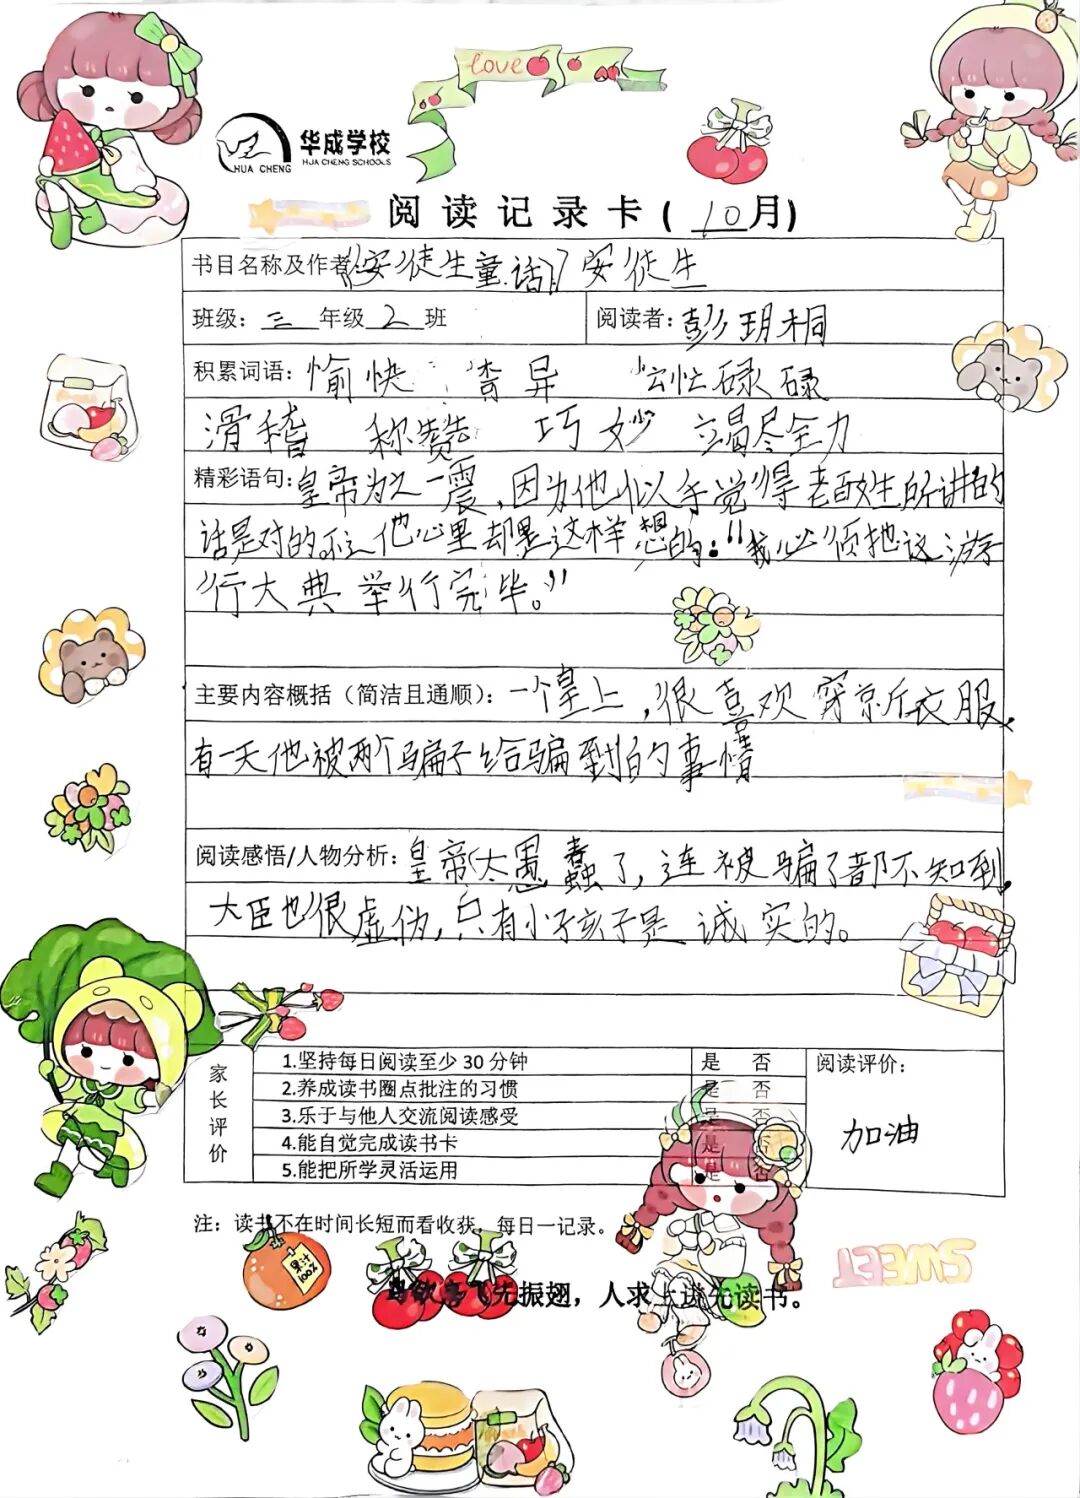 love
华成学校
HUA CHENG SCHOOLS
HUA CHENG
阅读记录卡(10月)
书目名称及作者:《安徒生童话》安徒生
班级:三年级2班 阅读者:彭玥桐
积累词语:愉快 奇异 忙碌碌
滑稽 称赞 巧妙 竭尽全力
精彩语句:皇帝为之一震,因为他似乎觉得老百姓所讲的
话是对的。不过他心里却是这样想的:"我必须把这游
行大典举行完毕。"
主要内容概括(简洁且通顺):一个皇上,很喜欢穿新衣服,
有一天他被两个骗子给骗到的事情
阅读感悟/人物分析:皇帝太愚蠢了,连被骗了都不知到,
大臣也很虚伪,只有小孩子是诚实的。
家长评价
1.坚持每日阅读至少30分钟 是 否
2.养成读书圈点批注的习惯 是 否
3.乐于与他人交流阅读感受 是 否
4.能自觉完成读书卡 是
5.能把所学灵活运用 是 否
阅读评价:
加油
注:读书不在时间长短而看收获,每日一记录。
果汁
100%
SWEET
鸟欲高飞先振翅,人求上进先读书。